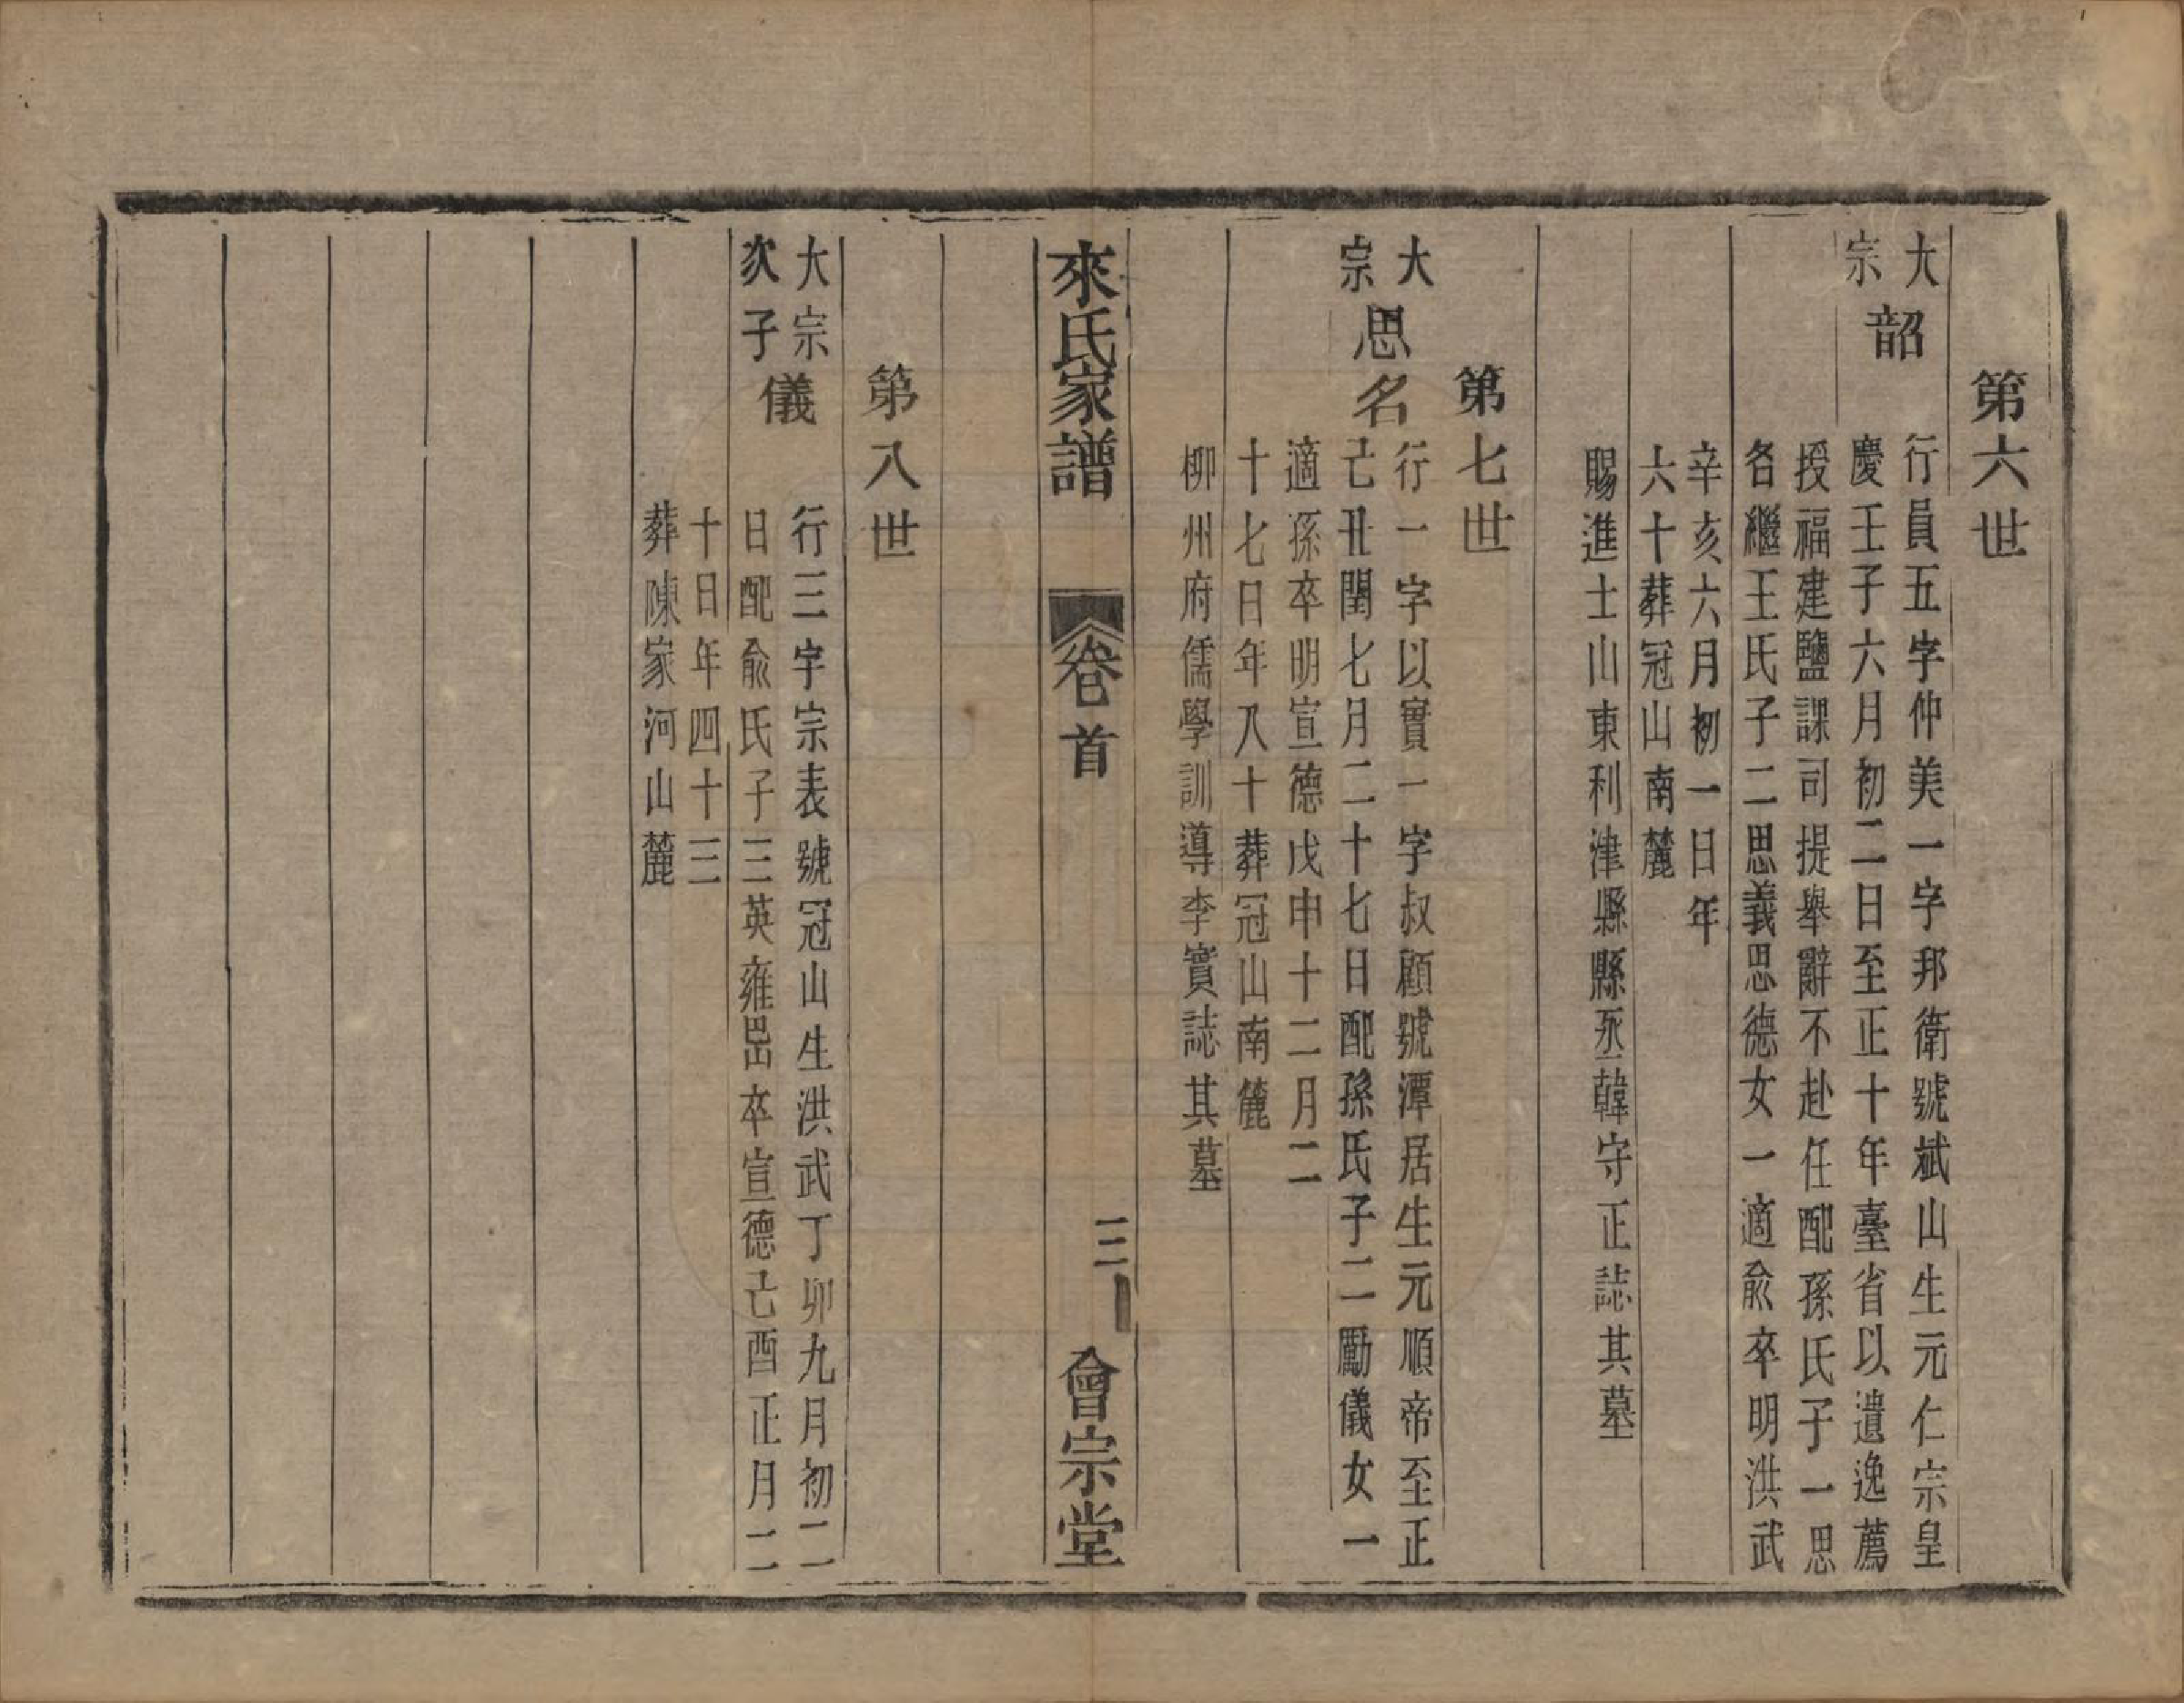 第六世
大宗
韶
行員五字仲美一字邦衛號斌山生元仁宗皇
慶壬子六月初二日至正十年臺省以遺逸薦
授福建鹽課司提舉辭不赴任配孫氏子一思
名繼王氏子二思義思德女一適俞卒明洪武
辛亥六月初一日年
六十葬冠山南麓
賜進士山東利津縣縣丞韓守正誌其墓
第七世
大宗
思名
行一字以實一字叔顧號潭居生元順帝至正
己丑閏七月二十七日配孫氏子二勵儀女一
適孫卒明宣德戊申十二月二
十七日年八十葬冠山南麓
柳州府儒學訓導李實誌其墓
來氏家譜
卷首
三
會宗堂
第八世
大宗
次子
儀
行三字宗表號冠山生洪武丁卯九月初二
日配俞氏子三英雍嵒卒宣德己酉正月二
十日年四十三
葬陳家河山麓